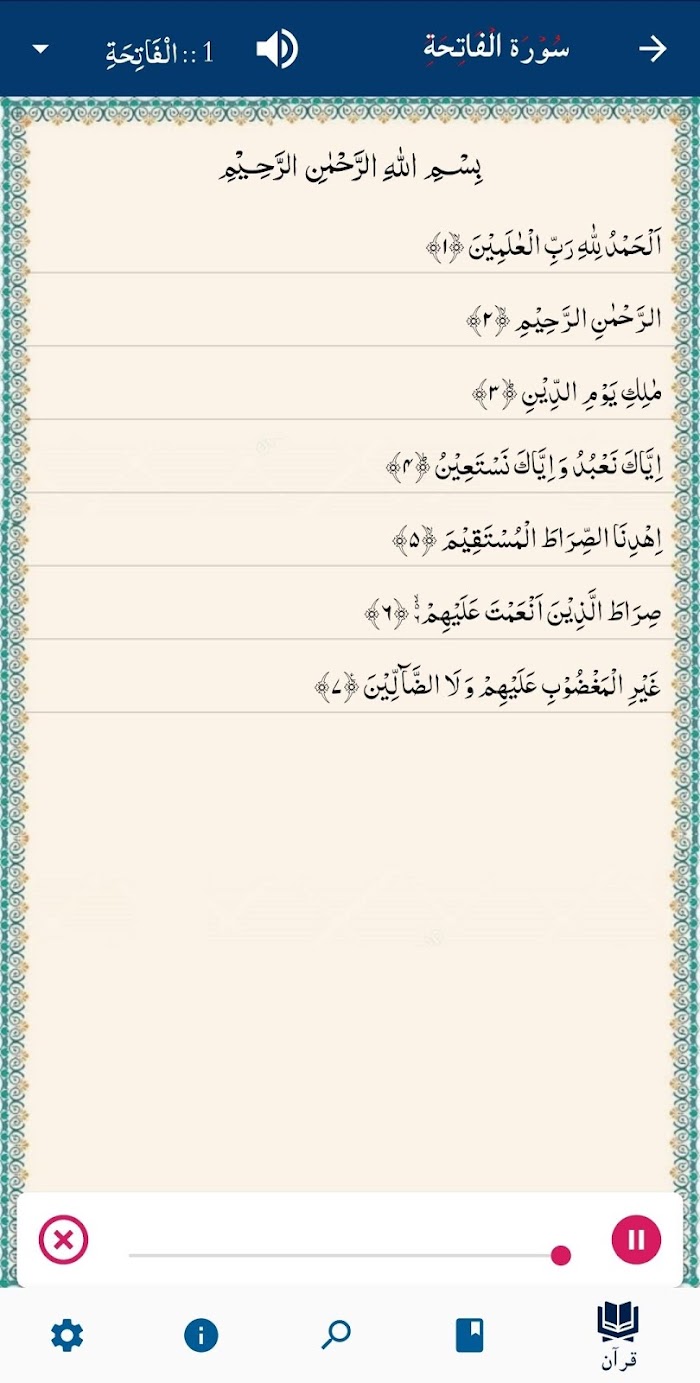 سُوْرَة الْفَاتِحَةِ
1 :: الْفَاتِحَةِ
بِسْمِ اللّٰهِ الرَّحْمٰنِ الرَّحِيْمِ
اَلْحَمْدُ لِلّٰهِ رَبِّ الْعٰلَمِيْنَ ﴿۱﴾
الرَّحْمٰنِ الرَّحِيْمِ ﴿۲﴾
مٰلِكِ يَوْمِ الدِّيْنِ ﴿۳﴾
اِيَّاكَ نَعْبُدُ وَ اِيَّاكَ نَسْتَعِيْنُ ﴿۴﴾
اِهْدِنَا الصِّرَاطَ الْمُسْتَقِيْمَ ﴿۵﴾
صِرَاطَ الَّذِيْنَ اَنْعَمْتَ عَلَيْهِمْ ﴿۶﴾
غَيْرِ الْمَغْضُوْبِ عَلَيْهِمْ وَ لَا الضَّآلِّيْنَ ﴿۷﴾
قرآن